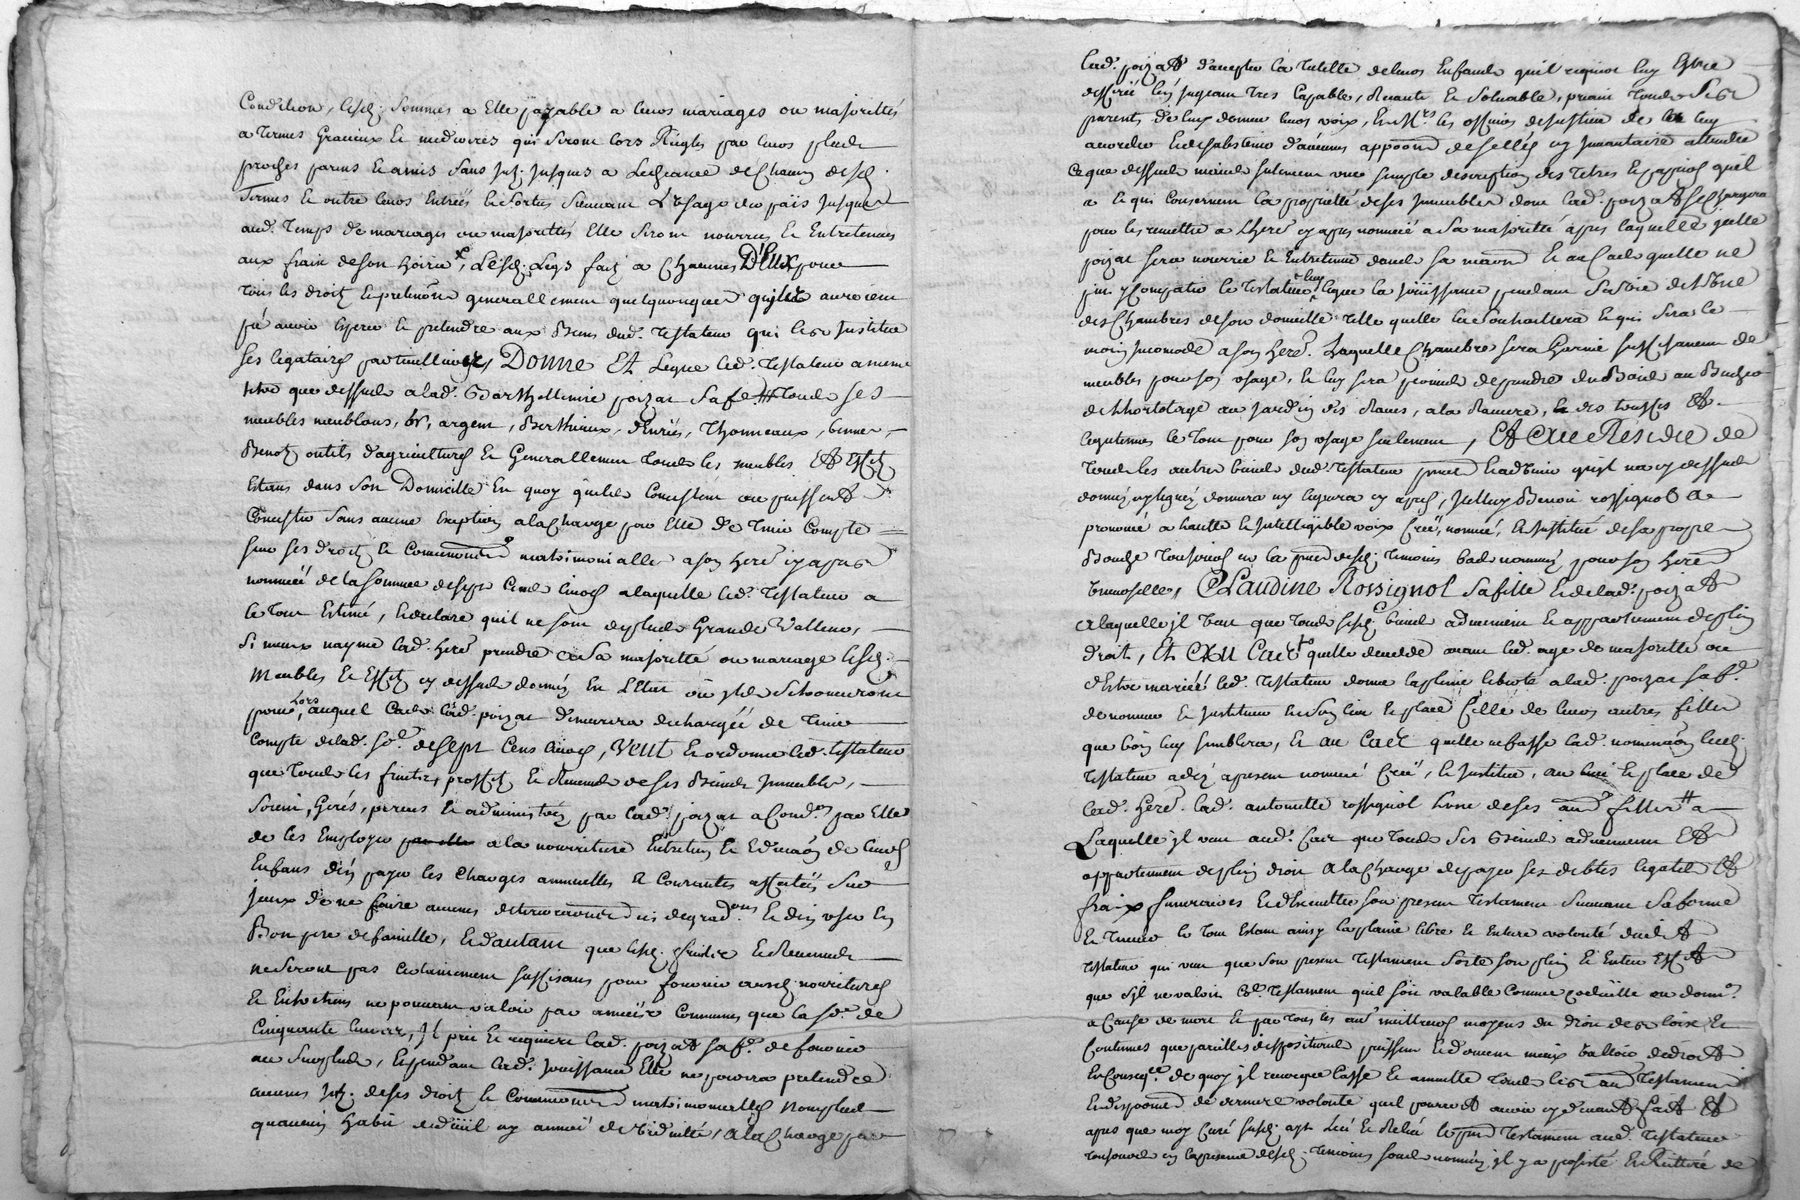 Condition, lesd. sommes a Elle payable a leurs mariages ou majorittés
a termes Gracieux Et mediocres qui seront lors Reigles par leurs plus
proches parens Et amis sans jusques a Lecheance de Chacun desd.
Termes Et outre leurs Entrées Et sorties suivant L'usage du pais jusques
aud. Temps de mariages ou majorittés Elle seront nourries Et Entretenues
aux frais de son hoirie, Lesd. Legs fait a Chacunes D'Eux pour
tous les droits Et generallement quelquonques qu'ils auroient
pû avoir Et pretendre aux Biens dud. Testateur qui les Institue
ses legataires particulliaires Donne Et Legue led. Testateur a meme
titre que dessus a lad. Barthellemie poizat sa fe. tous ses
meubles meublans, or, argent, Bestiaux, denrées, Thonneaux, bennes,
Benots outils d'agricultures Et Generallement tous les meubles Et Effets
Estans dans son Domicille En quoy qu'ils Consistent ou puissent
Consister sans aucune Exception a la Charge par Elle de tenir Compte
sur ses droits Et matrimonialle a son here. cy apres
nommée de la somme de sept Cens livres a laquelle led. Testateur a
le tout Estimé, Et declare qu'il ne sont de plus Grande Valleur,
si mieux n'ayme lad. here. prendre a sa majoritté ou mariage lesd.
Meubles Et Effets cy dessus donnés En L'Etat ou ils se trouveront
pour lors, auquel Cas lad. poizat demeurera dechargée de tenir
Compte de lad. so.e de sept Cens livres, Veut Et ordonne led. testateur
que tous les fruits, proffits Et Revenus de ses Biens Immeubles,
soient, Gerés, perçus Et administrés par lad. poizat a Cond.on par Elle
de les Employer a la nourriture Entretien Et de leurs
Enfans d'en payer les Charges annuelles Et Courantes affectées sur
jceux de ne faire aucunes ni degrad.ons Et d'en user En
Bon pere de famille, Et d'autant que lesd. fruits Et Revenus
ne seront pas certainement suffisans pour fournir auxd. nouritures
Et Entretiens ne pouvant valoir par années Communes que la so.e de
Cinquante livres, Il prie Et requiere lad. poizat sa f.e de fournir
au surplus, Et pendant lad. jouissance Elle ne pourra pretendre
aucuns de ses droits Et matrimonialles non plus
qu'aucun habit de dueil ny année de viduitté, a la Charge par
lad. poizat d'accepter la tutelle de leurs Enfans qu'il requiert luy Estre
defferée l'en jugeant tres Capable, Et solvable, priant tous ses
parents de luy donner leurs voix, Et Mrs les officiers de justice de le luy
accorder Et de s'abstenir d'aucuns de sellés ny jnvantaire attendu
Ce que dessus mais sulement une simple description des titres Et papiers qu'il
a Et qui Consernent la proprietté de ses Immeubles dont lad. poizat se Chargera
pour les remettre a l'here. cy apres nommée a sa majoritté apres laquelle jcelle
poizat sera nourrie Et Entretenue dans sa maison Et au Cas quelle ne
pui Compatir le testateur luy legue la joüissance pendant sa vie de L'une
des Chambres de son domicille telle quelle le souhaittera Et qui sera le
moin jncomode a son here. Laquelle Chambre sera Garnie suffisament de
meubles pour son usage, Et luy sera permis de prendre du Bois au Bucher
de Lhortolage au jardin des Raves, a la Raviere, Et des trufes Et
legumes le tout pour son usage seulement, Et Au Résidu de
tous les autres biens dud. testateur qu'il na cy dessus
donnés ny legués donnera ny leguera cy apres, jcelluy Benoit rossignol a
prononcé a haulte Et jntelligible voix Creé, nommé, Et Institué de sa propre
Bouche toujours en la desd. temoins Bas nommés pour son here.
universelle, Claudine Rossignol sa fille Et de lad. poizat
a laquelle jl veut que tous sesd. biens adviennent Et appartiennent de plein
droit, Et Au Cas quelle decede avant led. age de majoritté ou
d'Estre mariée led. testateur donne la pleine liberté a lad. poizat sa f.e
de nommer Et jnstituer En son lieu Et place Celle de leurs autres filles
que bon luy semblera, Et au Cas quelle ne fasse lad. nomination led.
testateur a des apresent nommé Creé, Et Institué, au Et place de
lad. here. lad. antoinette rossignol L'une de ses filles a
Laquelle jl veut aud. Cas que tous ses Biens adviennent Et
appartiennent de plein droit A la Charge de payer ses debtes legats Et
fraix funeraires Et d'Executter son present testament suivant sa forme
Et teneur le tout Etant ainsy la plaine libre Et Entiere volonté dudit
testateur qui veut que son present testament sorte son plein Et Entier Effet
que s'Il ne valoit Co.e testament qu'il soit valable Comme codicille ou don.on
a Cause de mort Et par tous les meilleurs moyens du droit des loix Et
Coutumes que pareilles dispositions puissent Et doivent mieux valloir de droit
En Conseq.ce de quoy jl revoque Casse Et annulle tous les autres testament
Et de derniere volonté qu'il pourroit avoir cy devant fait Et
apres que moy Curé susd. ayt Leu Et Releu le testament aud. testateur
toujours en la presence desd. temoins sous nommés, jl y a persisté Et Reitteré de